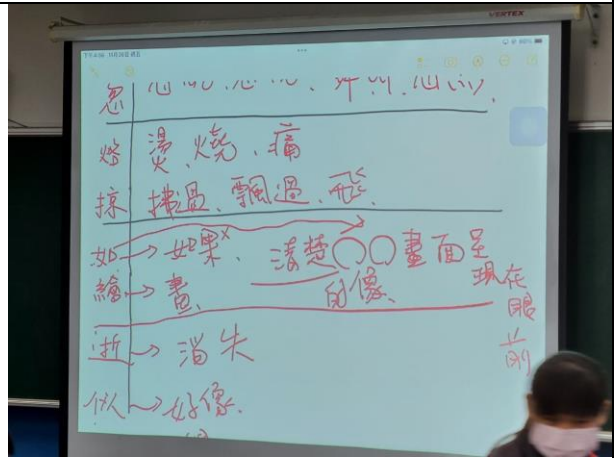 VERTEX
忽
烙 燙、燒、痛
掠 拂過、飄過、飛
如→如果x、清楚〇〇畫面呈現在眼前
的像、
繪→畫、
逝→消失
似→好像、